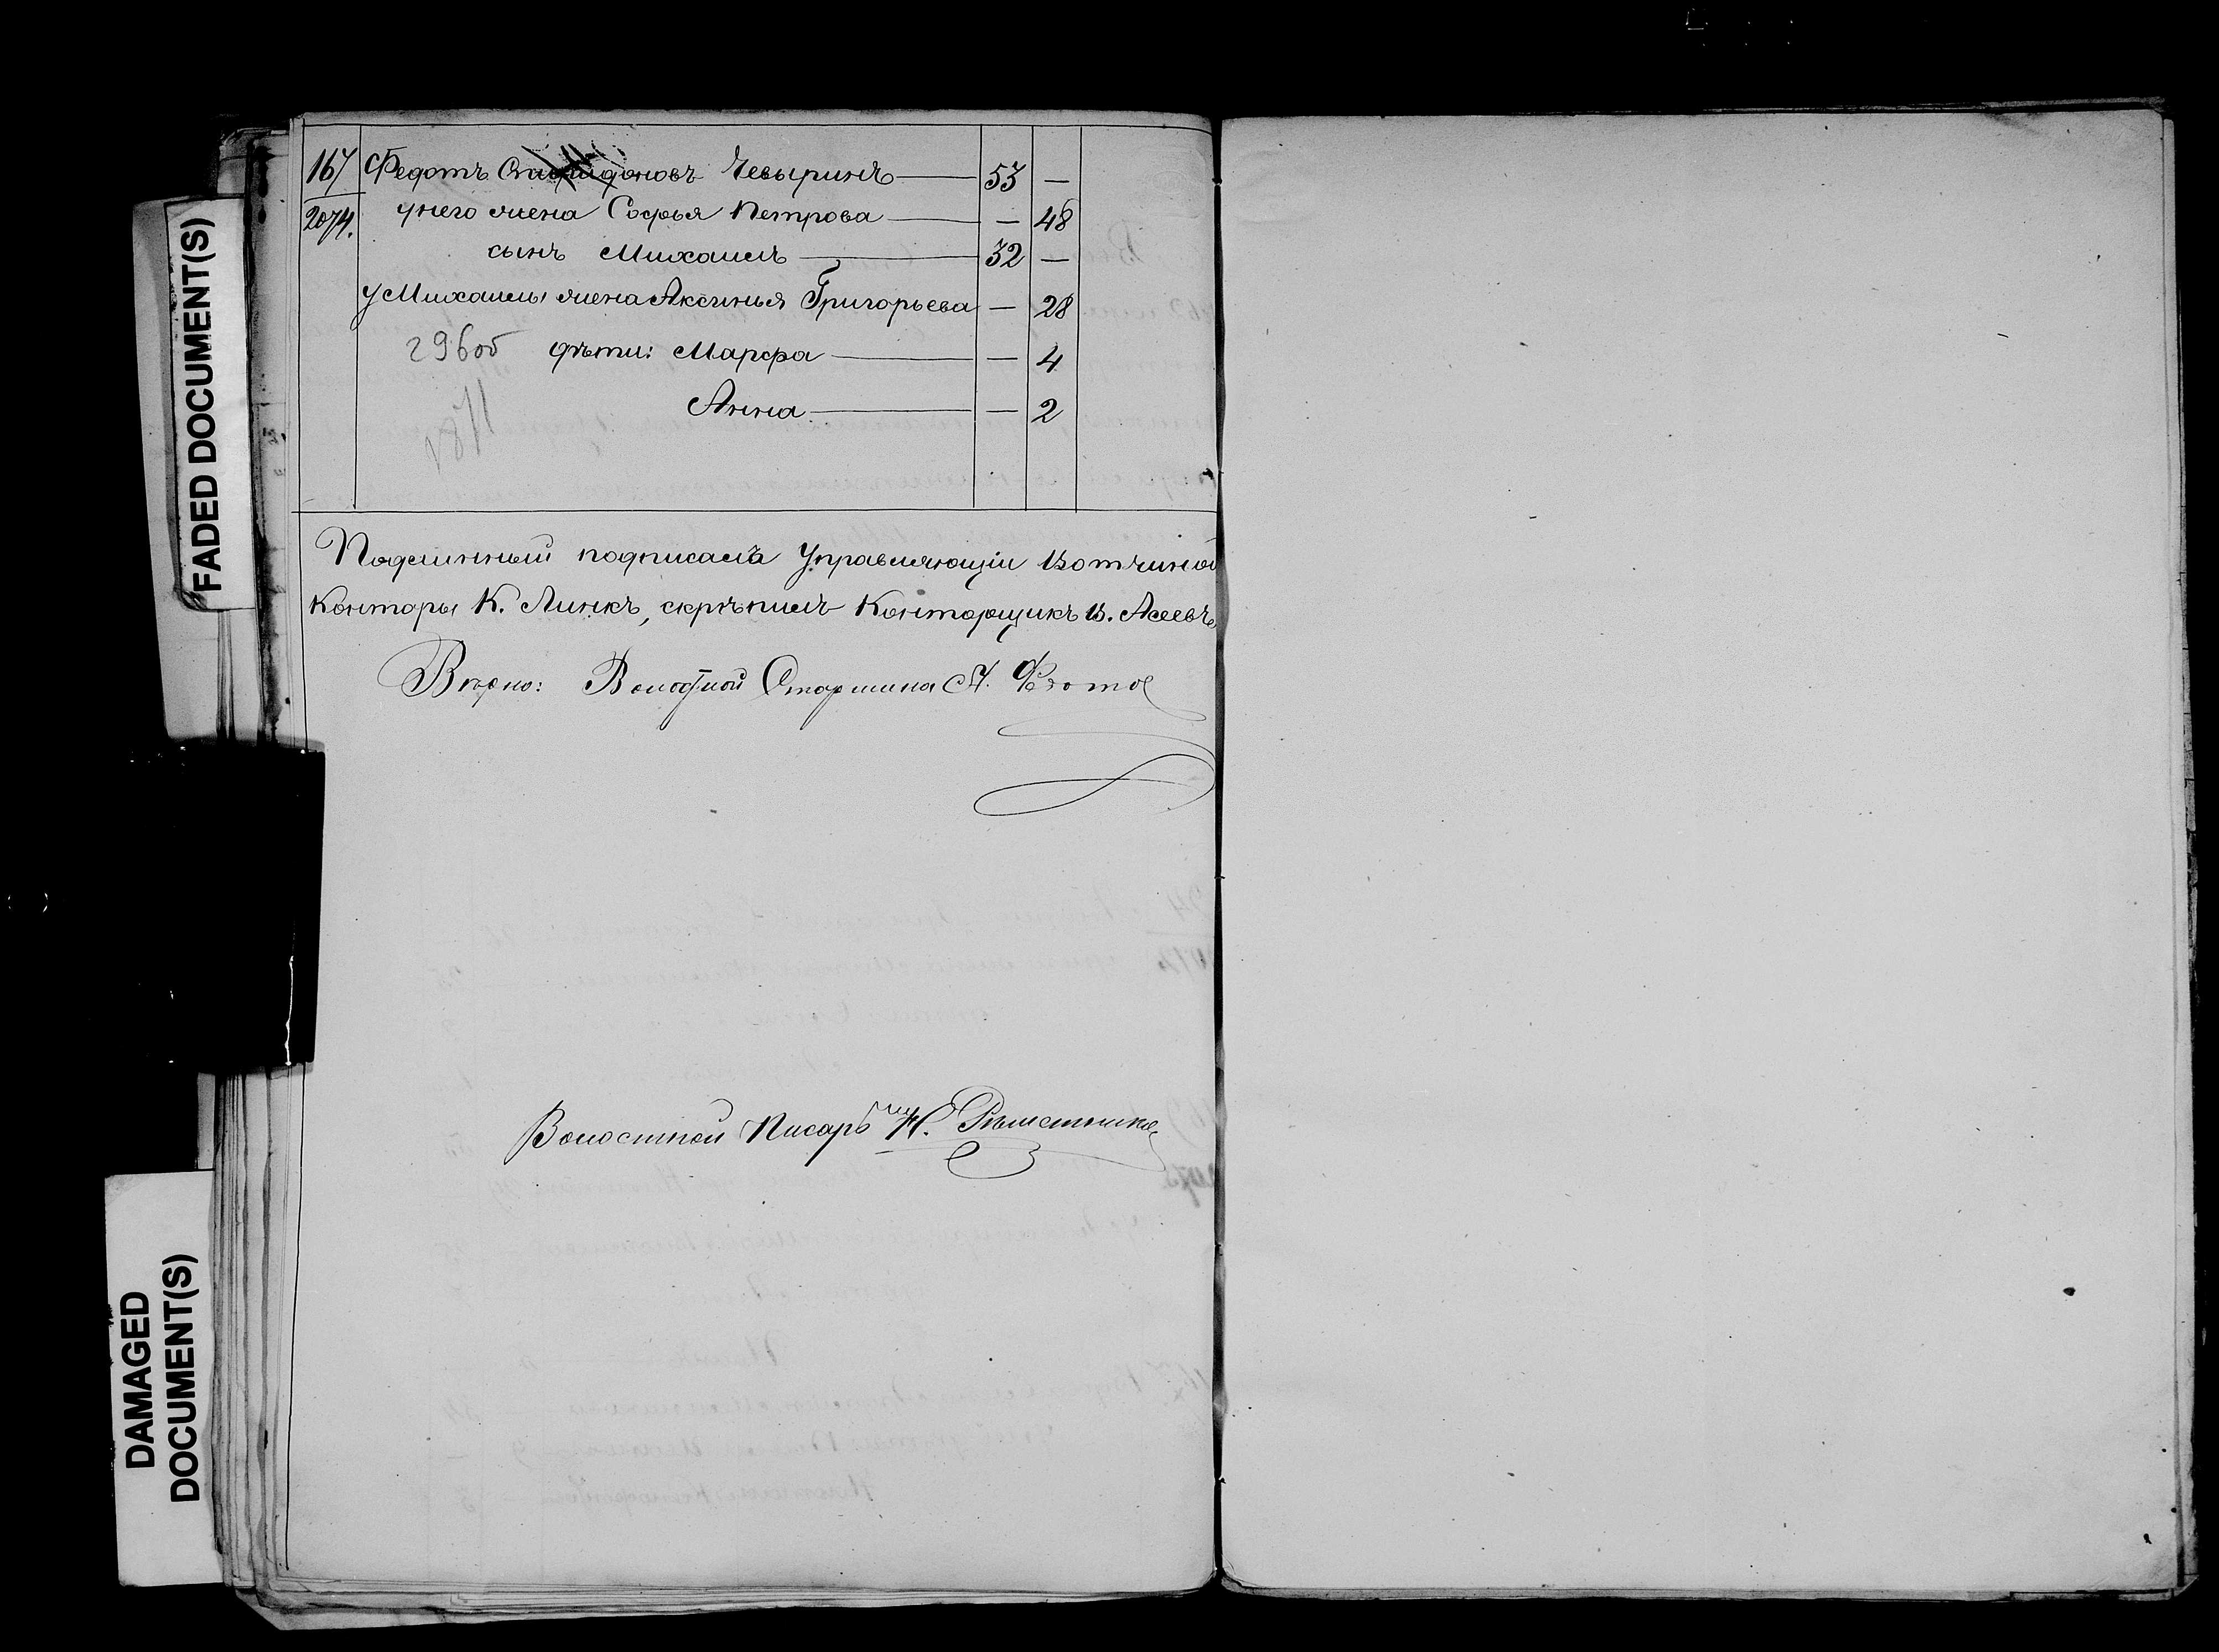 167 Федотъ Спиридоновъ Чевыринъ — 53 —
2074. у него жена Софья Петрова — — 48
сынъ Михаилъ — 32 —
у Михаилы жена Аксинья Григорьева — 28
296об дѣти: Марфа — — 4
Анна — — 2
Подлинный подписалъ Управляющій Вотчиной
Конторы К. Линкъ, скрѣпилъ Конторщикъ В. Асеевъ
Вѣрно: Волостной Старшина А. Федотов
Волостной Писарь Н. Рѣшетников
FADED DOCUMENT(S)
DAMAGED
DOCUMENT(S)